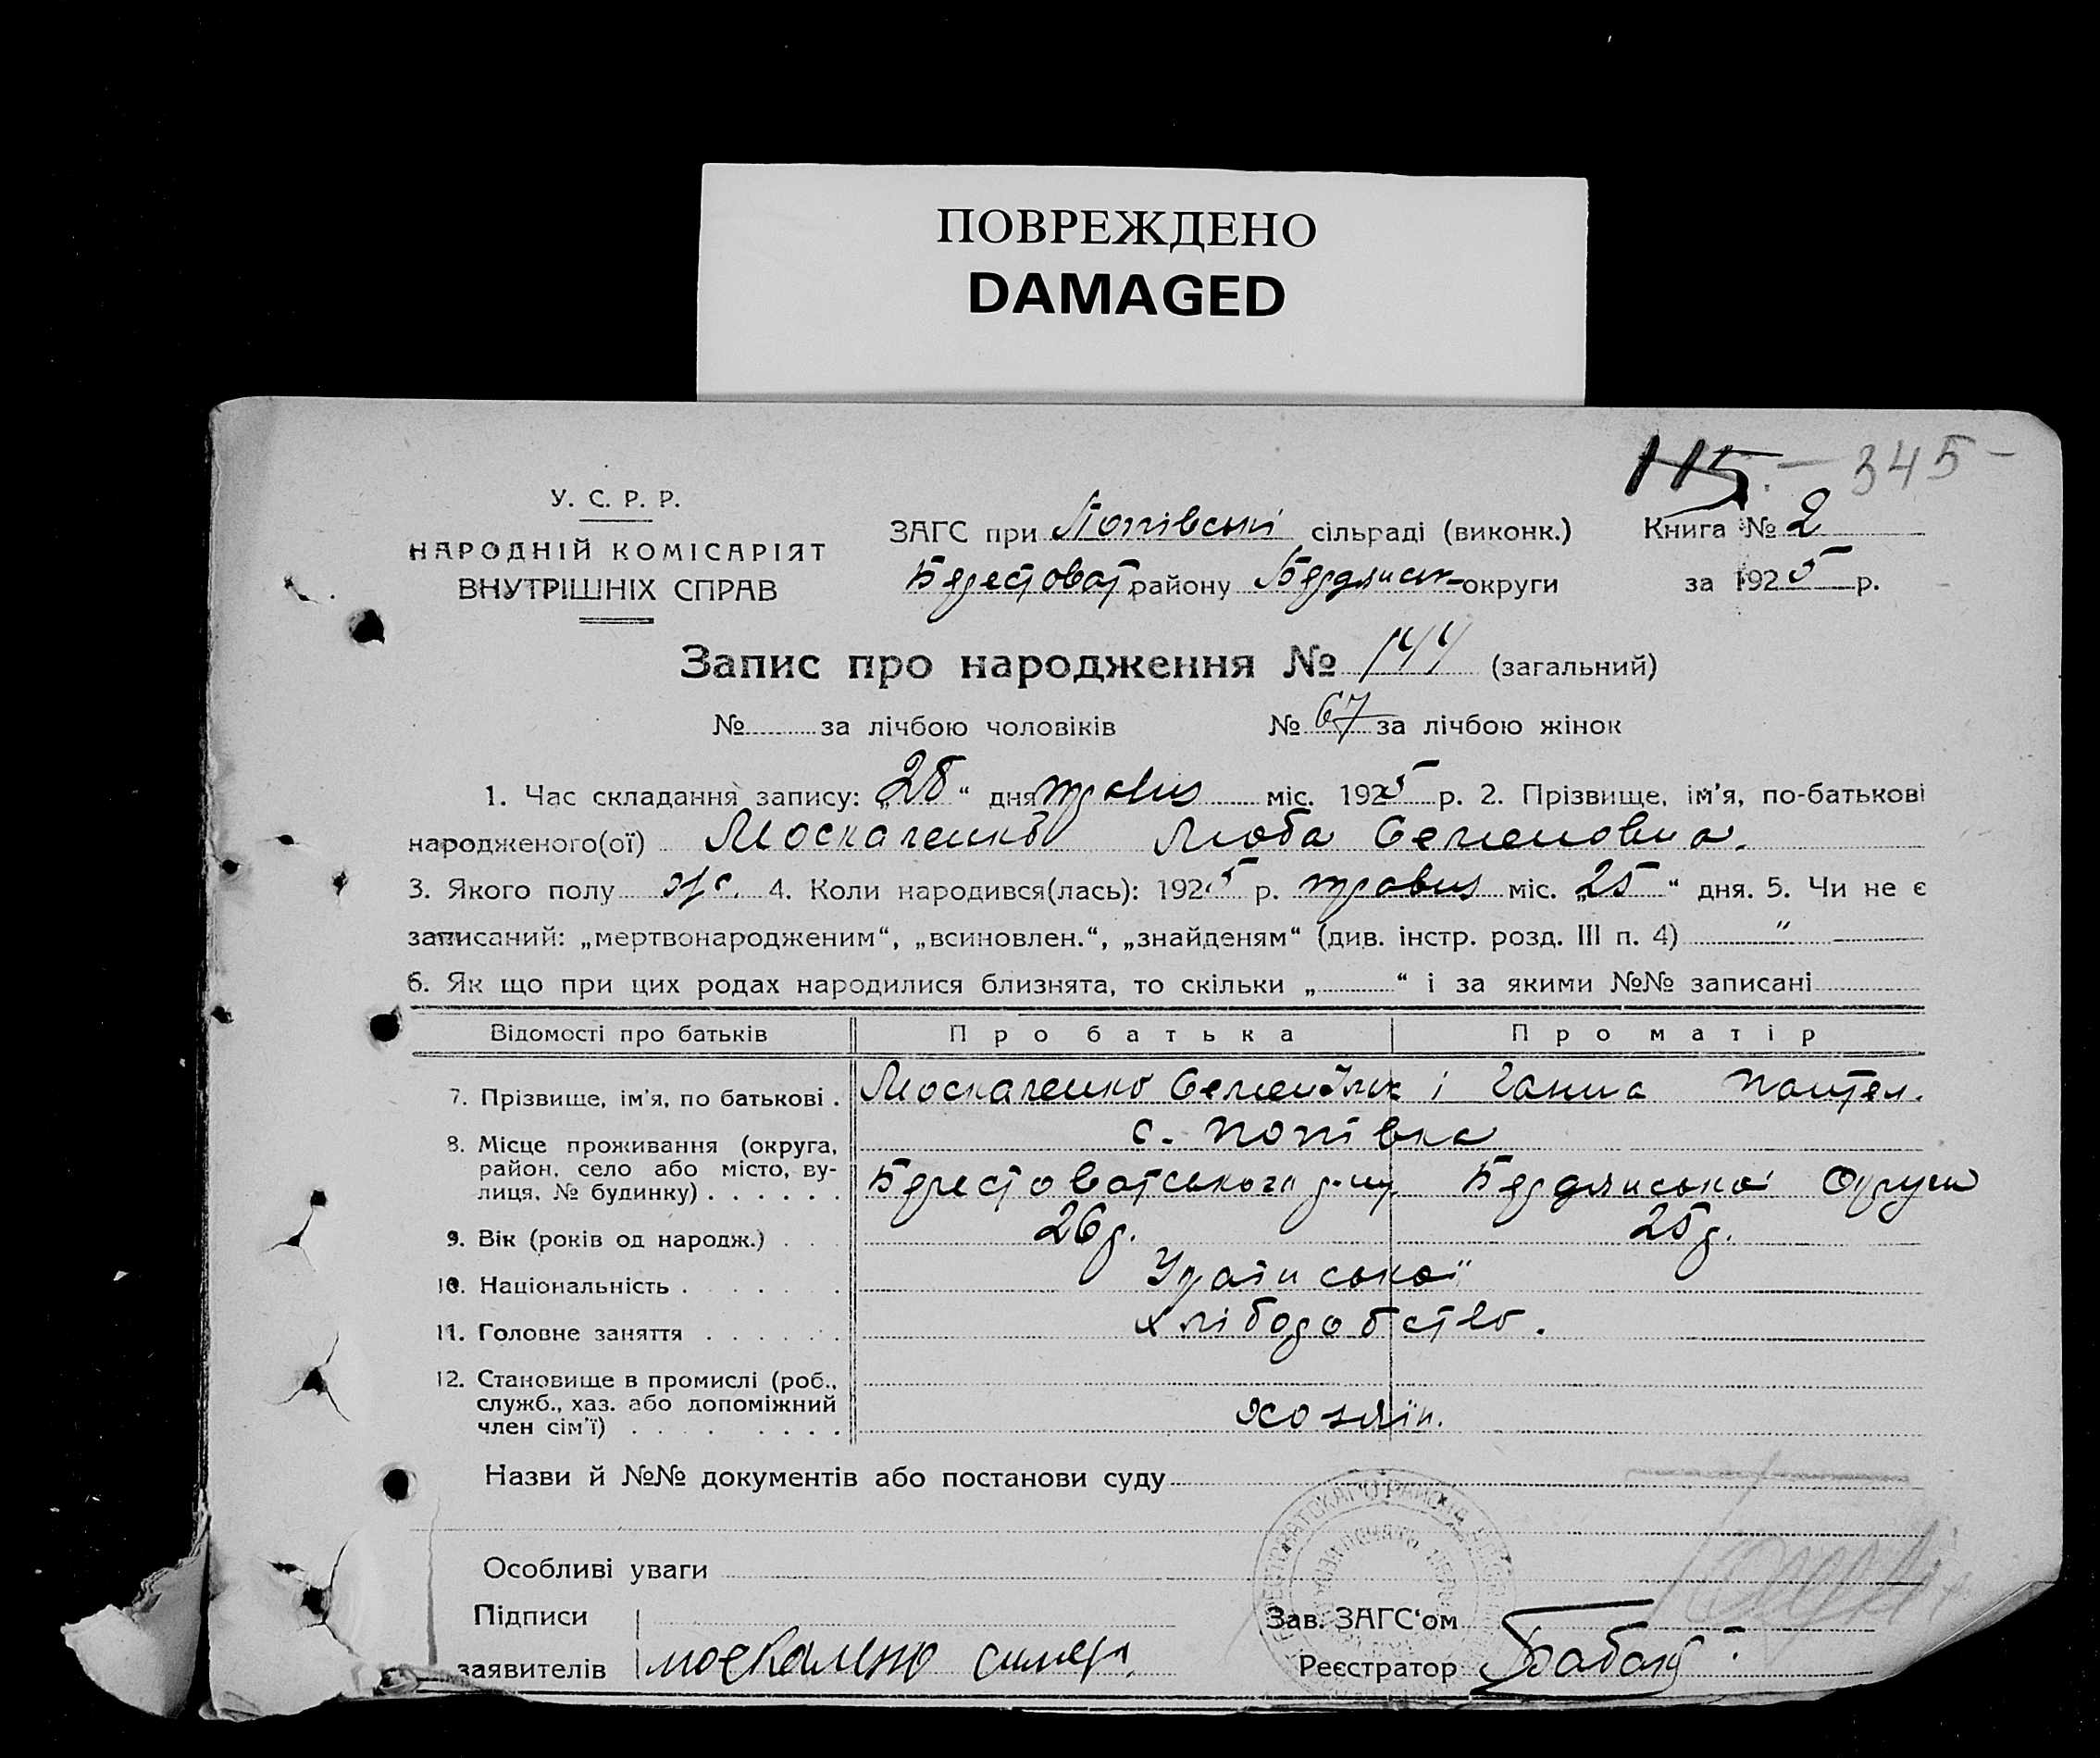 ПОВРЕЖДЕНО
DAMAGED
115. - 345 -
У. С. Р. Р.
НАРОДНІЙ КОМІСАРІЯТ
ВНУТРІШНІХ СПРАВ
ЗАГС при Попівські сільраді (виконк.)
Берестоват району Бердянск округи
Книга № 2
за 1925 р.
Запис про народження № 144 (загальний)
№ за лічбою чоловіків № 67 за лічбою жінок
1. Час складання запису: „28“ дня травня міс. 1925 р. 2. Прізвище, ім'я, по-батькові
народженого(ої) Москаленко Люба Семеновна.
3. Якого полу ж. 4. Коли народився(лась): 1925 р. травня міс. „25“ дня. 5. Чи не є
записаний: „мертвонародженим“, „всиновлен.“, „знайденям“ (див. інстр. розд. III п. 4) "
6. Як що при цих родах народилися близнята, то скільки „ “ і за якими №№ записані
Відомості про батьків Про батька Про матір
7. Прізвище, ім'я, по батькові . Москаленко Семен і Ганна Пантел.
8. Місце проживання (округа, с. Попівка
район, село або місто, ву-
лиця, № будинку) . . . . . . Берестоватського р-ну Бердянської Округи
9. Вік (років од народж.) . . . 26 р. 25 р.
10. Національність . . . . . . Української
11. Головне заняття . . . . . . хліборобство.
12. Становище в промислі (роб.,
служб., хаз. або допоміжний хозяїн.
член сім'ї) . . . . . . . .
Назви й №№ документів або постанови суду
Особливі уваги
Підписи
заявителів Москаленко
Зав. ЗАГС'ом
Реєстратор